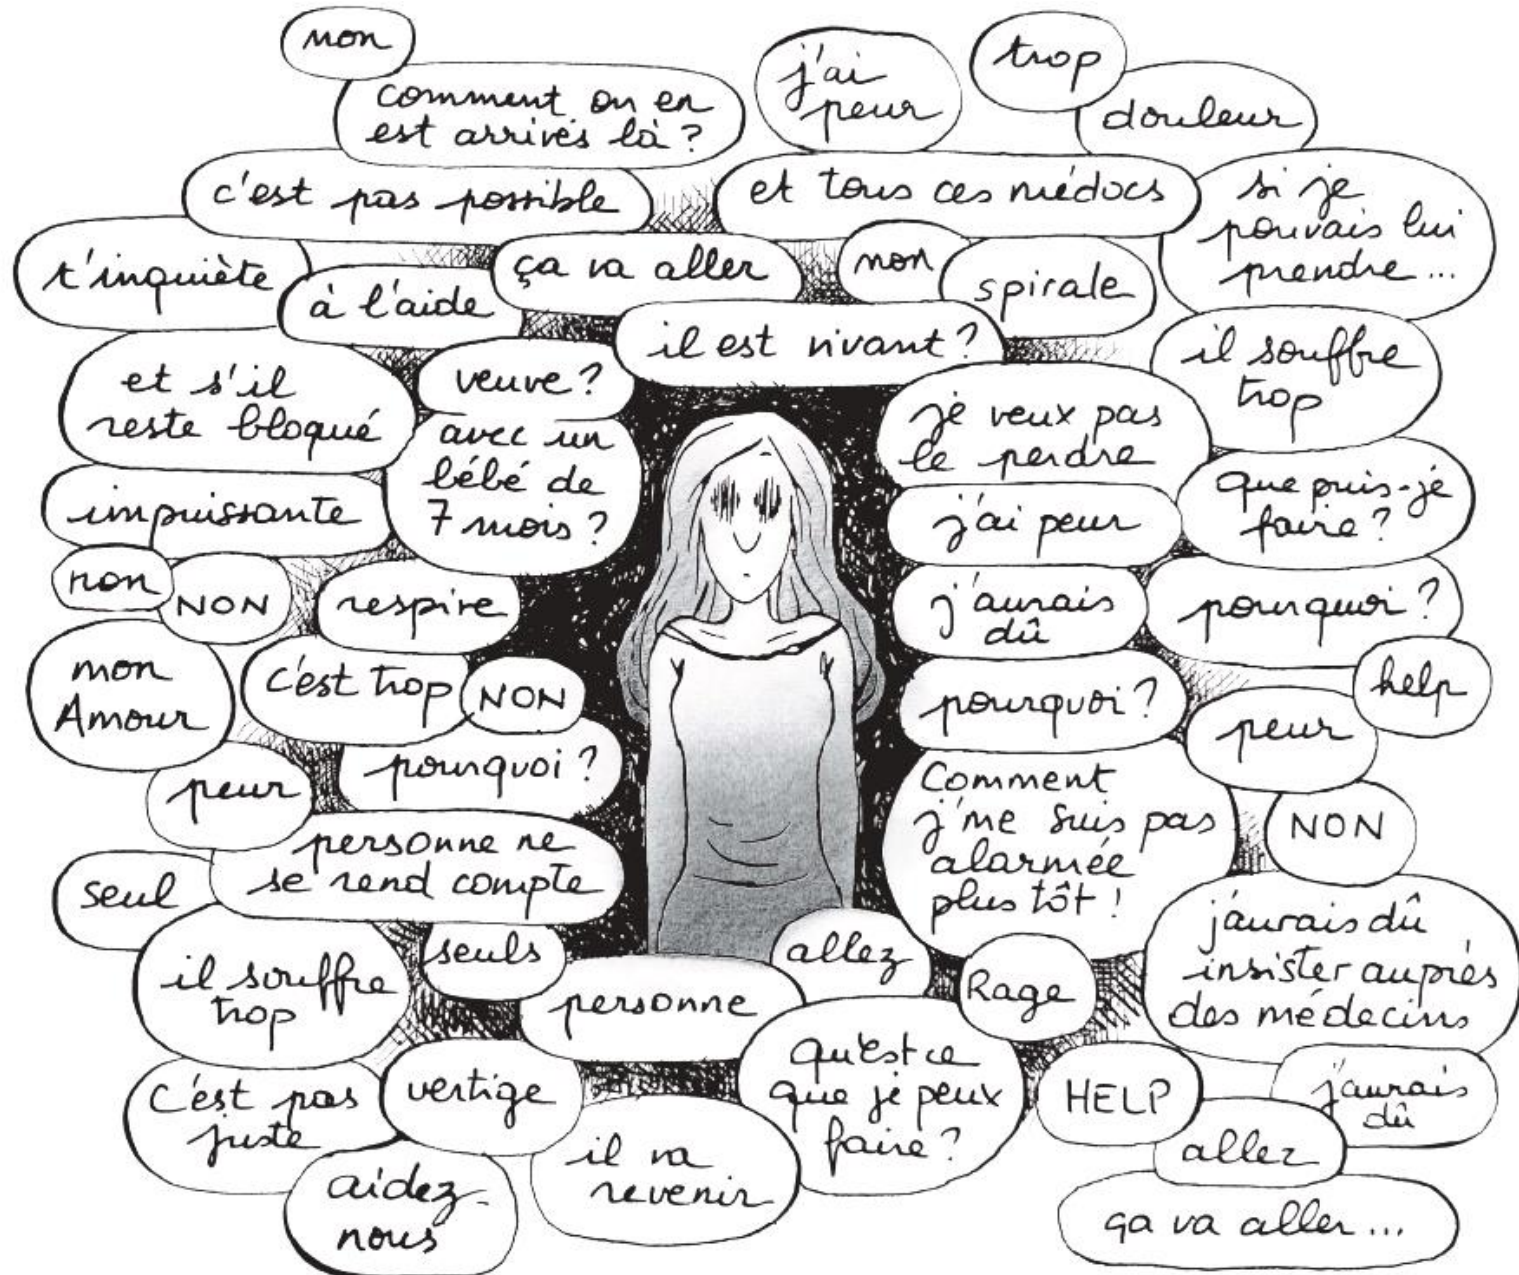 non
comment on en
est arrivés là ?
j'ai
peur
trop
douleur
c'est pas possible
et tous ces médocs
si je
pouvais lui
prendre...
t'inquiète
à l'aide
ça va aller
non
spirale
il est vivant ?
il souffre
trop
et s'il
reste bloqué
veuve ?
avec un
bébé de
7 mois ?
je veux pas
le perdre
impuissante
j'ai peur
que puis-je
faire ?
non
NON
respire
j'aurais
dû
pourquoi ?
mon
Amour
c'est trop
NON
pourquoi ?
peur
help
peur
pourquoi ?
Comment
j'me suis pas
alarmée
plus tôt !
NON
personne ne
se rend compte
seul
il souffre
trop
seuls
personne
allez
Rage
j'aurais dû
insister auprès
des médecins
c'est pas
juste
vertige
qu'est ce
que je peux
faire ?
HELP
j'aurais
dû
aidez-
nous
il va
revenir
allez
ça va aller...